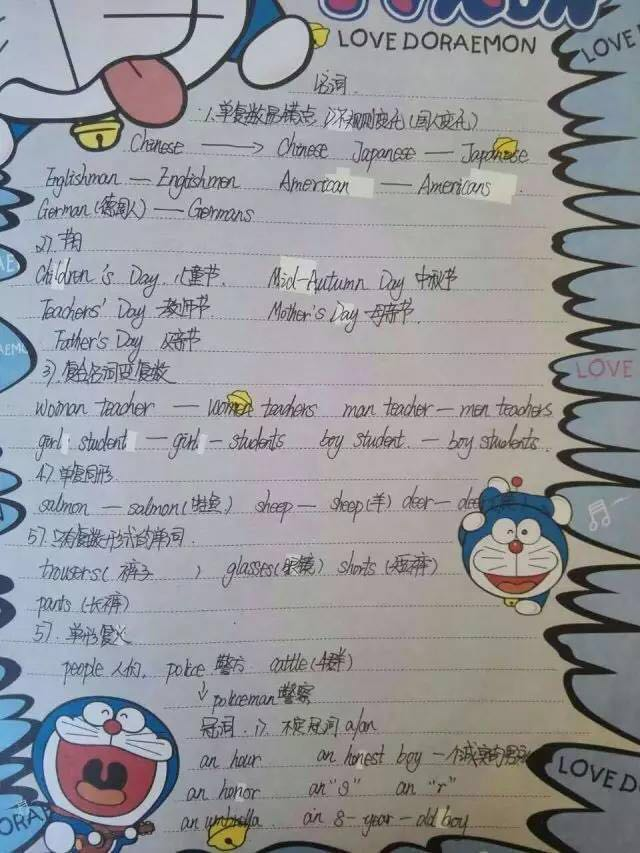 LOVE DORAEMON
LOVE
名词
1、单复数易错点 1)不规则变化(国人变化)
Chinese → Chinese Japanese — Japanese
Englishman — Englishmen American — Americans
German (德国人) — Germans
2)、节日
Children's Day 儿童节. Mid-Autumn Day 中秋节
Teachers' Day 教师节 Mother's Day 母亲节.
Father's Day 父亲节
3)、复合名词变复数
woman teacher — women teachers man teacher — men teachers
girl student — girl - students boy student. — boy students.
LOVE
4)、单复同形
salmon — salmon(鲑鱼) sheep — sheep(羊) deer —
5)、只有复数形式的单词.
trousers( 裤子 ) glasses(眼镜) shorts (短裤)
pants (长裤)
5)、单形复义
people 人们. police 警方. cattle(牛群)
↓ policeman 警察
冠词. 1)、不定冠词 a/an
an hour an honest boy 一个诚实的男孩
an honor an "s" an "r"
an umbrella an 8- year - old boy
LOVE DO